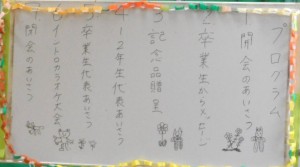 プログラム
1 開会のあいさつ
2 卒業生からスタート
3 記念品贈呈
4 1・2年生代表あいさつ
5 卒業生代表あいさつ
6 イントロカラオケ大会
7 閉会のあいさつ